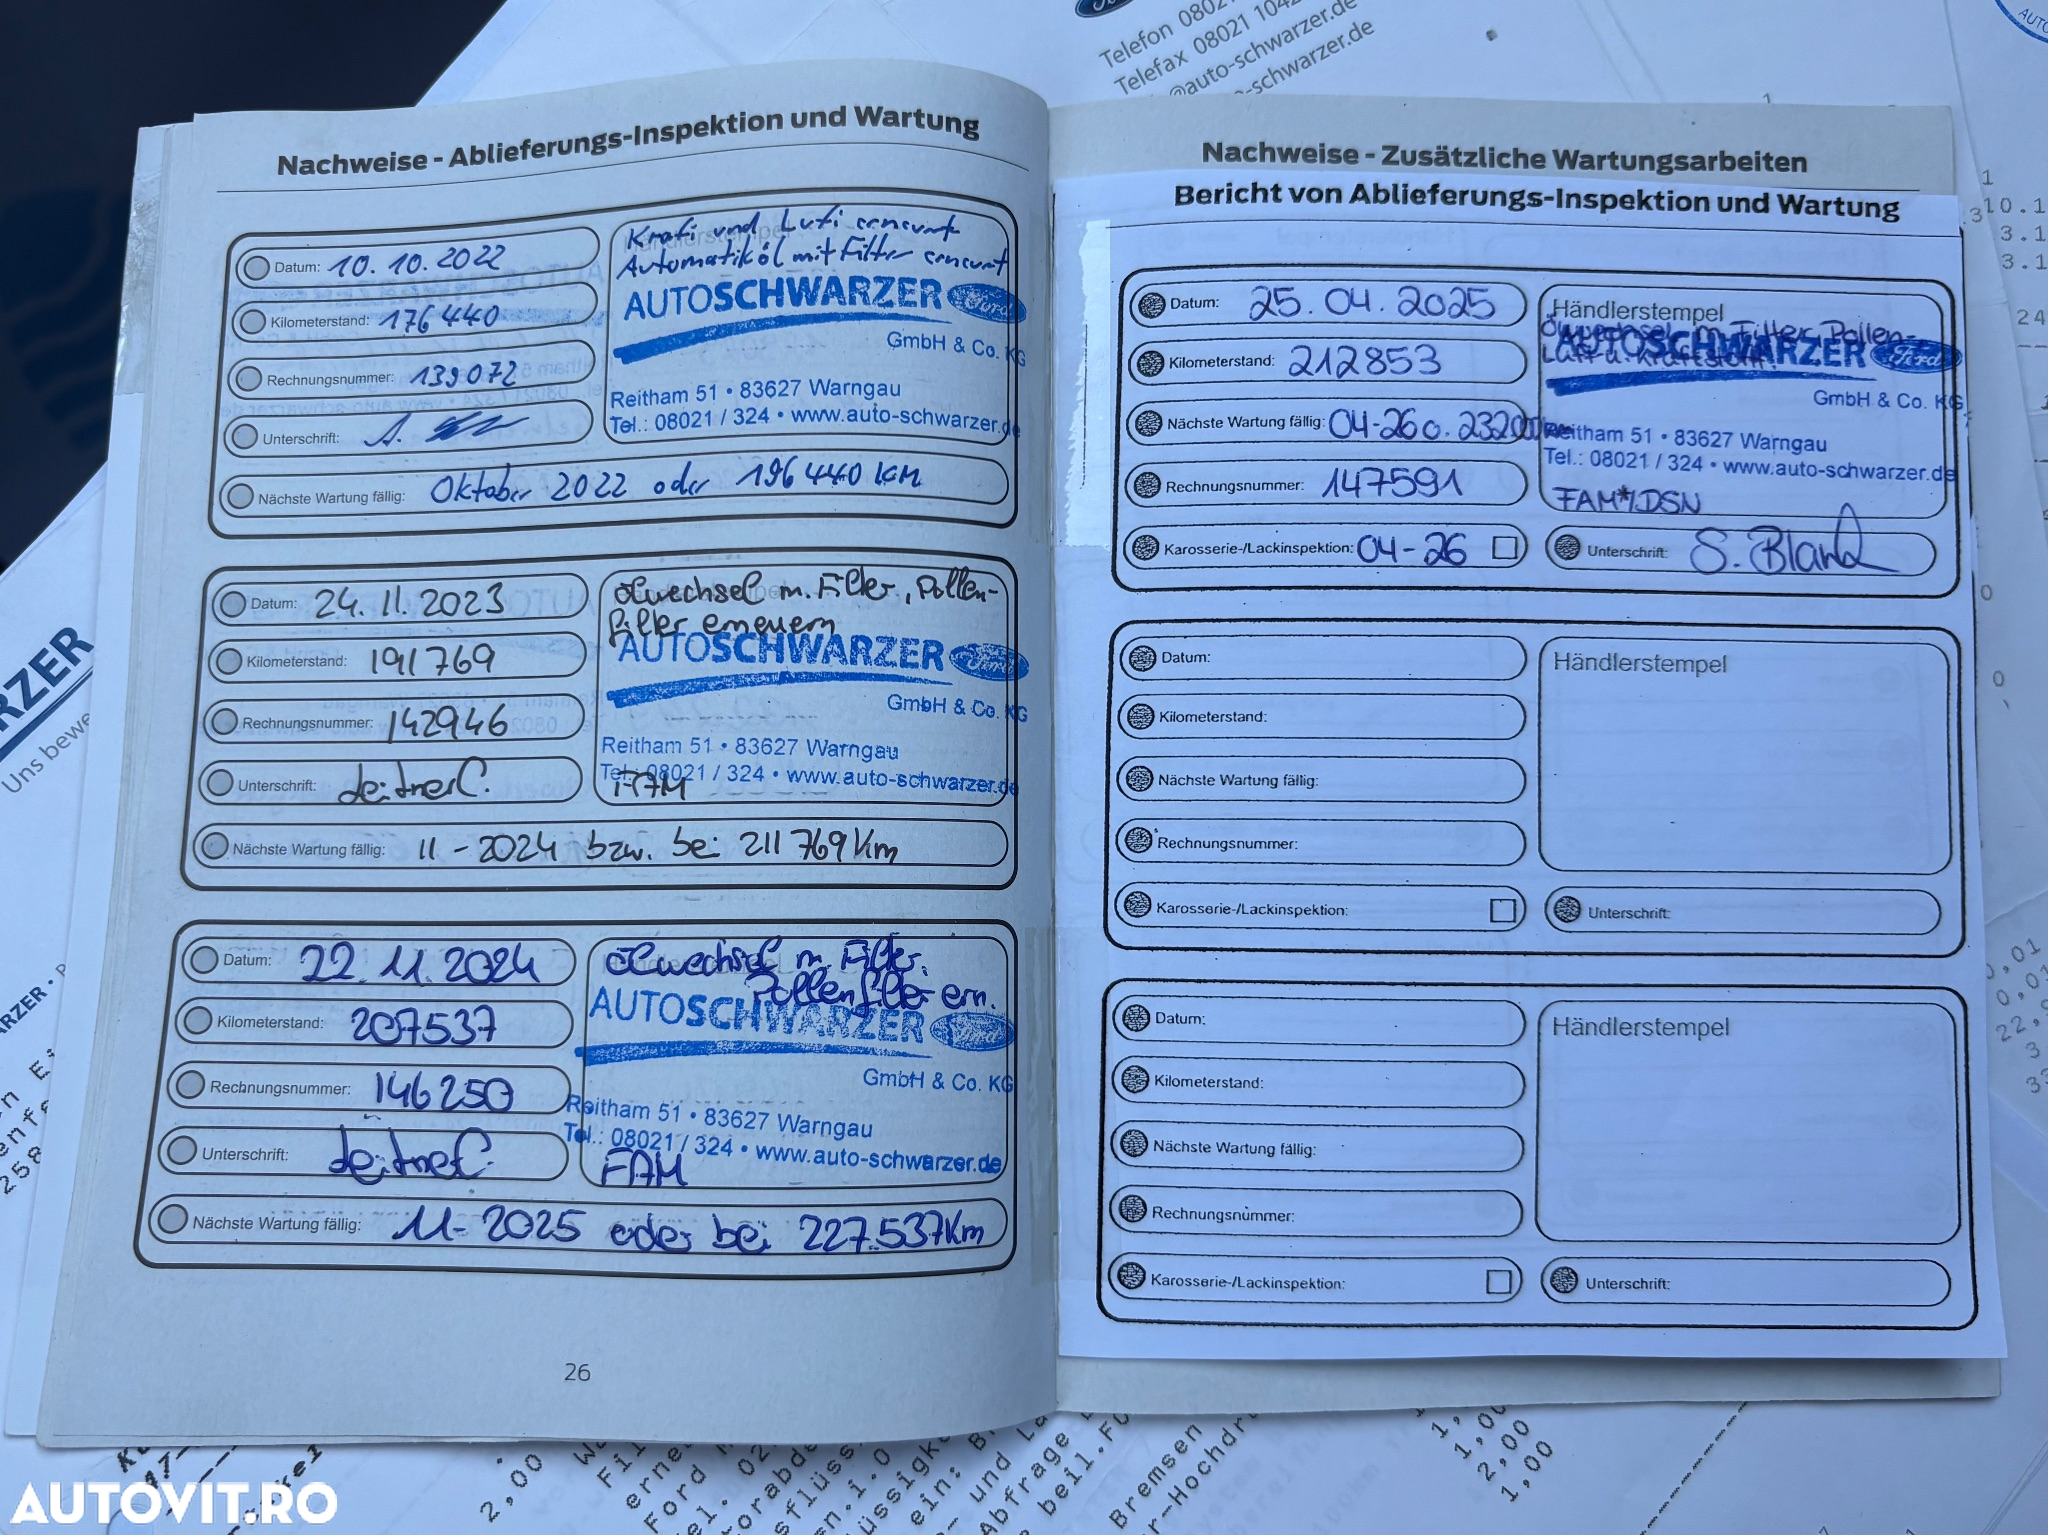 Telefon 0802
Telefax 08021 104
@auto-schwarzer.de
-schwarzer.de
Nachweise - Ablieferungs-Inspektion und Wartung
Datum: 10.10.2022
Kilometerstand: 176 440
Rechnungsnummer: 139072
Unterschrift:
Nächste Wartung fällig: Oktober 2022 oder 196440 KM
Krafi und Lufi erneuert
Automatiköl mit Filter erneuert
AUTOSCHWARZER Ford
GmbH & Co. KG
Reitham 51 • 83627 Warngau
Tel.: 08021 / 324 • www.auto-schwarzer.de
Datum: 24.11.2023
Kilometerstand: 191769
Rechnungsnummer: 142946
Unterschrift: LeitnerC.
Nächste Wartung fällig: 11-2024 bzw. bei 211769Km
Ölwechsel m. Filter, Pollen-
filter erneuern
AUTOSCHWARZER Ford
GmbH & Co. KG
Reitham 51 • 83627 Warngau
Tel.: 08021 / 324 • www.auto-schwarzer.de
FAM
Datum: 22.11.2024
Kilometerstand: 207537
Rechnungsnummer: 146250
Unterschrift: LeitnerC.
Nächste Wartung fällig: 11-2025 oder bei 227.537Km
Ölwechsel m. Filter,
Pollenfilter ern.
AUTOSCHWARZER Ford
GmbH & Co. KG
Reitham 51 • 83627 Warngau
Tel.: 08021 / 324 • www.auto-schwarzer.de
FAM
26
Nachweise - Zusätzliche Wartungsarbeiten
Bericht von Ablieferungs-Inspektion und Wartung
Datum: 25.04.2025
Kilometerstand: 212853
Nächste Wartung fällig: 04-26 o. 232000km
Rechnungsnummer: 147591
Karosserie-/Lackinspektion: 04-26
Händlerstempel
Ölwechsel m. Filter, Pollen-
Luft u. Kraftstoff.
AUTOSCHWARZER Ford
GmbH & Co. KG
Reitham 51 • 83627 Warngau
Tel.: 08021 / 324 • www.auto-schwarzer.de
FAM*1DSN
Unterschrift: S. Blank
Datum:
Kilometerstand:
Nächste Wartung fällig:
Rechnungsnummer:
Karosserie-/Lackinspektion:
Händlerstempel
Unterschrift:
Datum:
Kilometerstand:
Nächste Wartung fällig:
Rechnungsnummer:
Karosserie-/Lackinspektion:
Händlerstempel
Unterschrift:
RZER
Uns bewe
2,00
Abfrage
Bremsen
1,00
2,00
1,00
AUTOVIT.RO